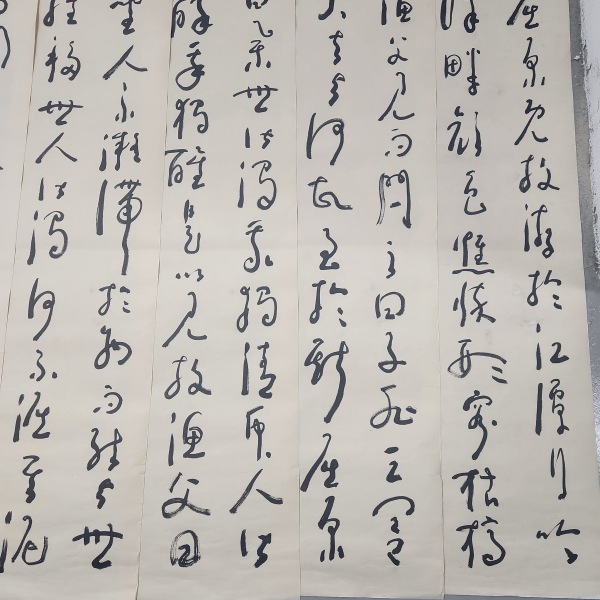 屈原既放游於江潭行吟
澤畔顏色憔悴形容枯槁
漁父見而問之曰子非三閭
大夫與何故至於斯屈原
曰舉世皆濁我獨清衆人皆
醉我獨醒是以見放漁父曰
聖人不凝滯於物而能與世
推移世人皆濁何不淈其泥